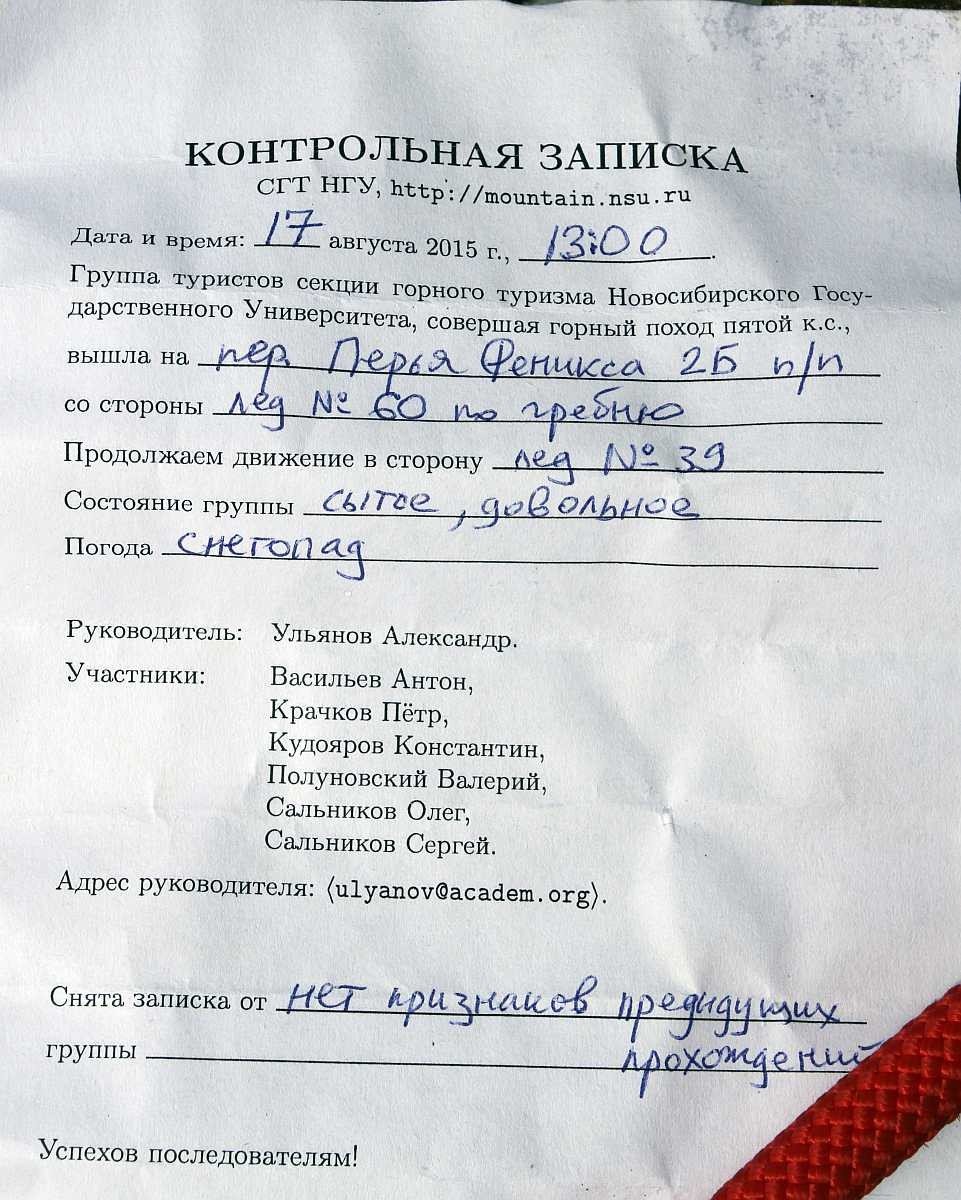 КОНТРОЛЬНАЯ ЗАПИСКА
СГТ НГУ, http://mountain.nsu.ru
Дата и время: 17 августа 2015 г., 13:00.
Группа туристов секции горного туризма Новосибирского Госу-
дарственного Университета, совершая горный поход пятой к.с.,
вышла на пер. Перья Феникса 2Б п/п
со стороны лед № 60 по гребню
Продолжаем движение в сторону лед № 39
Состояние группы сытое, довольное
Погода снегопад
Руководитель: Ульянов Александр.
Участники: Васильев Антон,
Крачков Пётр,
Кудояров Константин,
Полуновский Валерий,
Сальников Олег,
Сальников Сергей.
Адрес руководителя: ⟨ulyanov@academ.org⟩.
Снята записка от нет признаков предыдущих
группы прохождений
Успехов последователям!